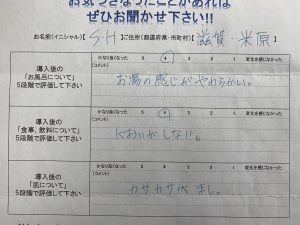 お気づきなったことがあれば
ぜひお聞かせ下さい!!
お名前(イニシャル)【 S・H 】ご住所(都道府県・市町村)【 滋賀・米原
導入後の
「お風呂について」
5段階で評価して下さい
かなり良くなった 5 4 3 2 1 変化を感じなかった
(コメント)
お湯の感じがやわらかい。
導入後の
「食事、飲料について」
5段階で評価して下さい
かなり良くなった 5 4 3 2 1 変化を感じなかった
(コメント)
においがしない。
導入後の
「肌について」
5段階で評価して下さい
かなり良くなった 5 4 3 2 1 変化を感じなかった
(コメント)
カサカサが まし。